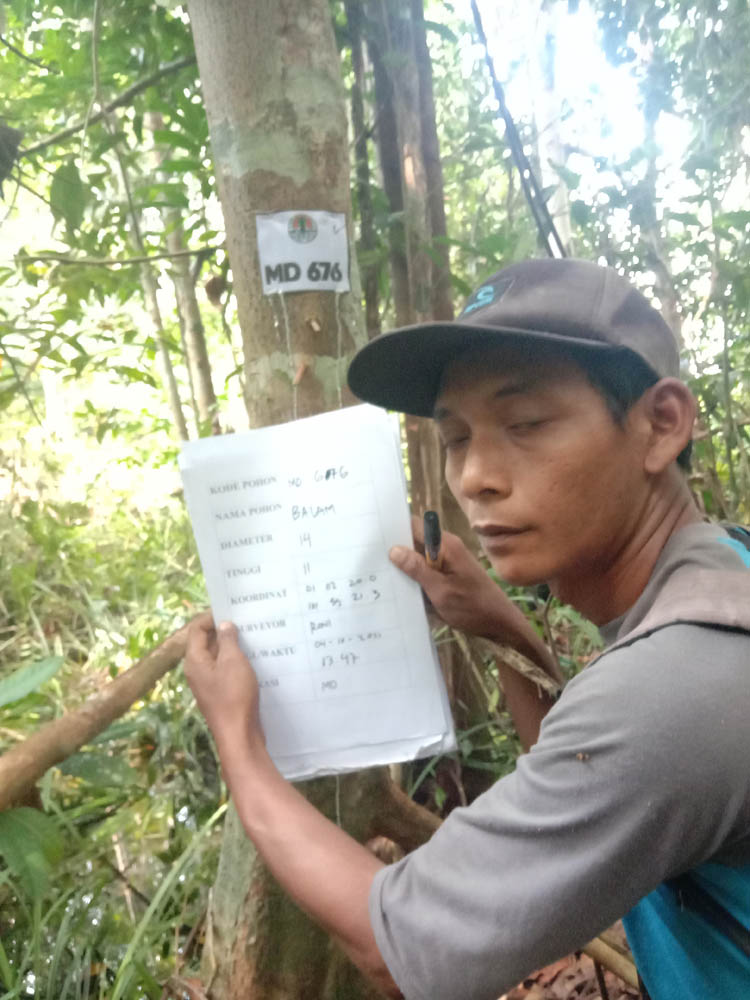 MD 676
KODE POHON MD 676
NAMA POHON BALAM
DIAMETER 14
TINGGI 11
KOORDINAT 01 02 20.0
101 59 21.3
SURVEYOR Roni
L/WAKTU 04-10-2021
13.47
ASI MD